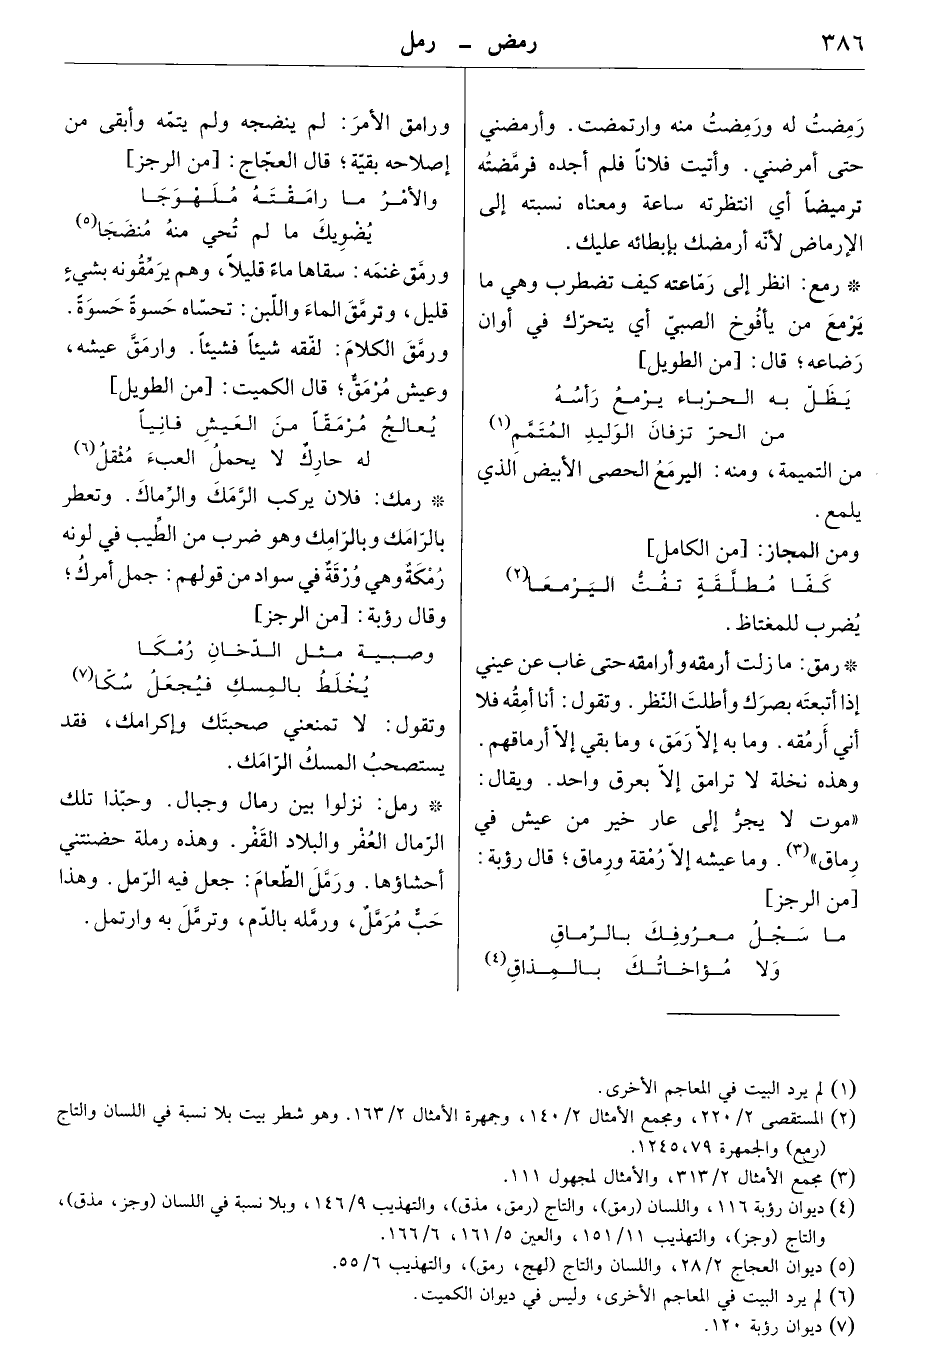 ٣٨٦
رمض ـ رمل
رَمِضتُ له ورَمِضتُ منه وارتمضت. وأرمضني
حتى أمرضني. وأتيت فلاناً فلم أجده فرمَّضتُه
ترميضاً أي انتظرته ساعة ومعناه نسبته إلى
الإرماض لأنّه أرمضك بإبطائه عليك.
* رمع: انظر إلى رَمّاعته كيف تضطرب وهي ما
يَرْمعَ من يأفُوخ الصبيّ أي يتحرّك في أوان
رَضاعه؛ قال: [من الطويل]
يَظَلّ به الحرْباء يرْمعُ رَأسُهُ
من الحرّ تزفانَ الوَليدِ المُتَمَّمِ(١)
من التميمة، ومنه: اليرمَعُ الحصى الأبيض الذي
يلمع.
ومن المجاز: [من الكامل]
كَفّا مُطلَّقَةٍ تفُتُّ اليَرْمعَا(٢)
يُضرب للمغتاظ.
* رمق: ما زلت أرمقه وأرامقه حتى غاب عن عيني
إذا أتبعته بصرَك وأطلتَ النّظر. وتقول: أنا أمِقُه فلا
أني أَرمُقه. وما به إلاّ رَمَق، وما بقي إلاّ أرماقهم.
وهذه نخلة لا ترامق إلاّ بعرق واحد. ويقال:
«موت لا يجرُّ إلى عار خير من عيش في
رِماق»(٣). وما عيشه إلاّ رُمْقة ورِماق؛ قال رؤبة:
[من الرجز]
ما سَجْلُ معروفِكَ بالرِّماقِ
وَلا مُؤاخاتُكَ بالمِذاقِ(٤)
ورامق الأمرَ: لم ينضجه ولم يتمّه وأبقى من
إصلاحه بقيّة؛ قال العجّاج: [من الرجز]
والأمْرُ ما رامَقْتَهُ مُلَهْوَجَا
يُضْوِيكَ ما لم تُحي منهُ مُنضَجَا(٥)
ورمَّق غنمَه: سقاها ماءً قليلاً، وهم يرَمِّقُونه بشيءٍ
قليل، وترمَّقَ الماءَ واللّبن: تحسّاه حَسوةً حَسوَةً.
ورمَّقَ الكلامَ: لفّقه شيئاً فشيئاً. وارمَقَّ عيشه،
وعيش مُرْمَقٌّ؛ قال الكميت: [من الطويل]
يُعالجُ مُرْمَقّاً منَ العَيشِ فانِياً
له حارِكٌ لا يحملُ العبءَ مُثْقلُ(٦)
* رمك: فلان يركب الرَّمَكَ والرِّماكَ. وتعطر
بالرّامَك وبالرّامِك وهو ضرب من الطِّيب في لونه
رُمْكَةٌ وهي وُرْقَةٌ في سواد من قولهم: جمل أمركُ؛
وقال رؤبة: [من الرجز]
وصبية مثل الدّخانِ رُمْكَا
يُخْلَطُ بالمِسكِ فيُجعَلُ سُكّا(٧)
وتقول: لا تمنعني صحبتَك وإكرامك، فقد
يستصحبُ المسكُ الرّامَك.
* رمل: نزلوا بين رمال وجبال. وحبّذا تلك
الرّمال العُفْر والبلاد القَفْر. وهذه رملة حضنتني
أحشاؤها. ورَمَّلَ الطّعامَ: جعل فيه الرّمل. وهذا
حَبٌّ مُرَمَّلٌ، ورمَّله بالدّم، وترمَّلَ به وارتمل.
(١) لم يرد البيت في المعاجم الأخرى.
(٢) المستقصى ٢/٢٢٠، ومجمع الأمثال ٢/١٤٠، وجمهرة الأمثال ٢/١٦٣. وهو شطر بيت بلا نسبة في اللسان والتاج
(رمع) والجمهرة ٧٩، ١٢٤٥.
(٣) مجمع الأمثال ٢/٣١٣، والأمثال لمجهول ١١١.
(٤) ديوان رؤبة ١١٦، واللسان (رمق)، والتاج (رمق، مذق)، والتهذيب ٩/١٤٦، وبلا نسبة في اللسان (وجز، مذق)،
والتاج (وجز)، والتهذيب ١١/١٥١، والعين ٥/١٦١، ٦/١٦٦.
(٥) ديوان العجاج ٢/٢٨، واللسان والتاج (لهج، رمق)، والتهذيب ٦/٥٥.
(٦) لم يرد البيت في المعاجم الأخرى، وليس في ديوان الكميت.
(٧) ديوان رؤبة ١٢٠.